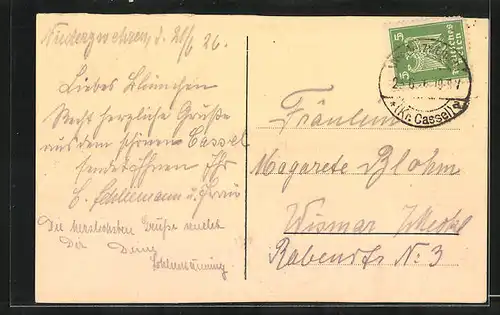 Niederzwehren, d. 21/6 26.
Liebes Blümchen
Recht herzliche Grüße
aus dem schönen Cassel
sendet Ihnen Ihr
u. Frau
Die herzlichsten Grüße sendet
Dir Deine
5 Deutsches Reich 5
(Kr. Cassel)
Fräulein
Magarete Blohm
Wismar i/Meckl
Rabenstr N. 3